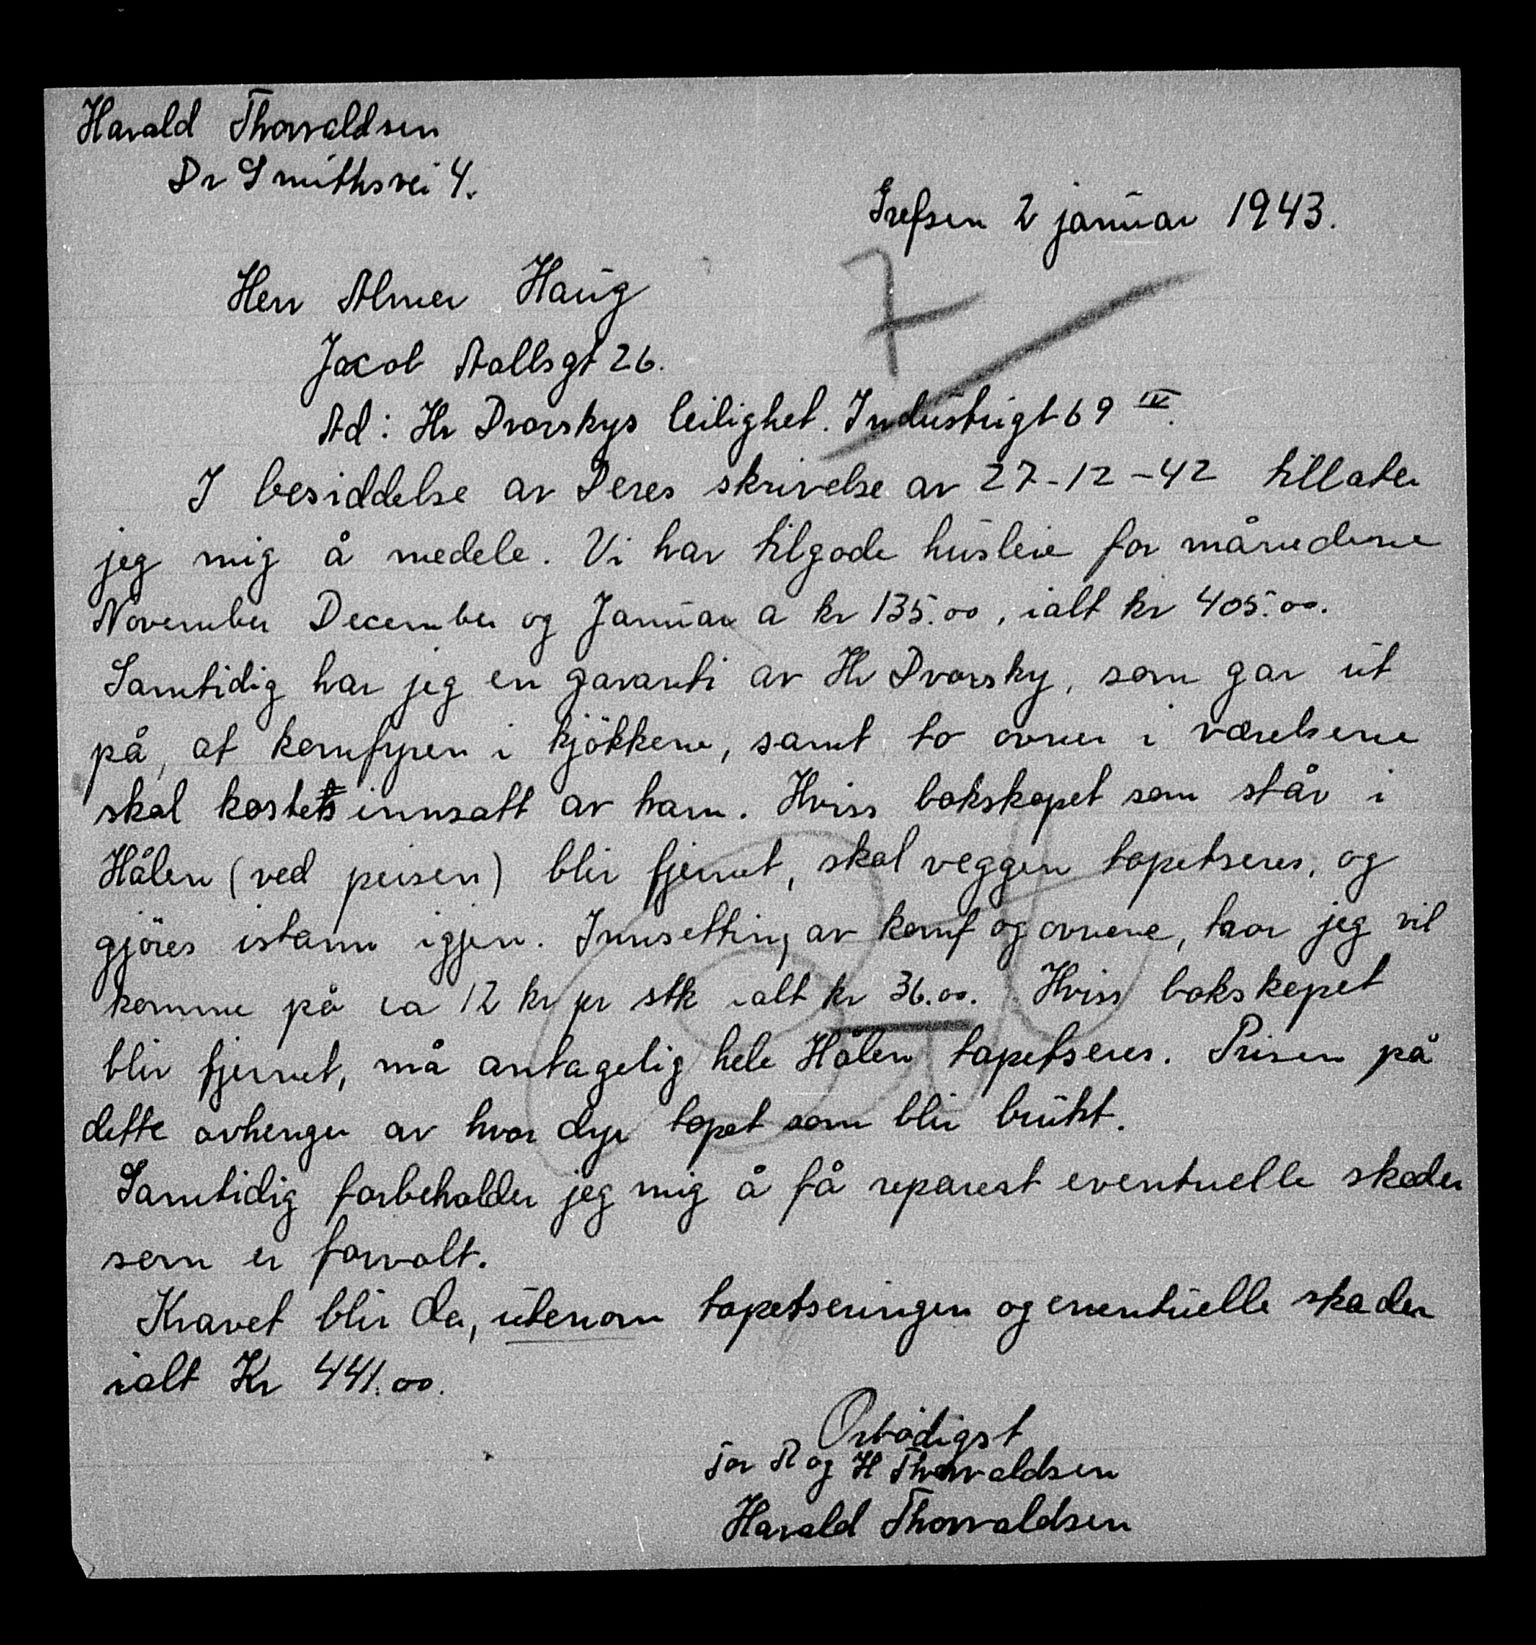 Harald Thorvaldsen
Dr Smithsvei 4.
Grefsen 2 januar 1943.
7
Herr Almer Haug
Jacob Aallsgt 26.
Ad: Hr Dvorskys leilighet. Industrigt 69 IV.
I besiddelse av Deres skrivelse av 27-12-42 tillater
jeg mig å medele. Vi har tilgode husleie for månedene
November December og Januar a kr 135.00, ialt kr 405.00.
Samtidig har jeg en garanti av Hr Dvorsky, som gar ut
på, at komfyren i kjökkene, samt to ovner i værelsene
skal kostes innsatt av ham. Hviss bokskapet som står i
Hålen (ved peisen) blir fjernet, skal veggen tapetseres, og
gjöres istann igjen. Innsetting av komf og ovnene, tror jeg vil
komme på ca 12 kr pr stk ialt kr 36.00. Hviss bokskapet
blir fjernet, må antagelig hele Hålen tapetseres. Prisen på
dette avhenger av hvor dyr tapet som blir brukt.
Samtidig forbeholder jeg mig å få reparert eventuelle skader
som er forvolt.
Kravet blir da, utenom tapetseringen og eventuelle skader
ialt Kr 441.00.
Ærbödigst
for R og H Thorvaldsen
Harald Thorvaldsen